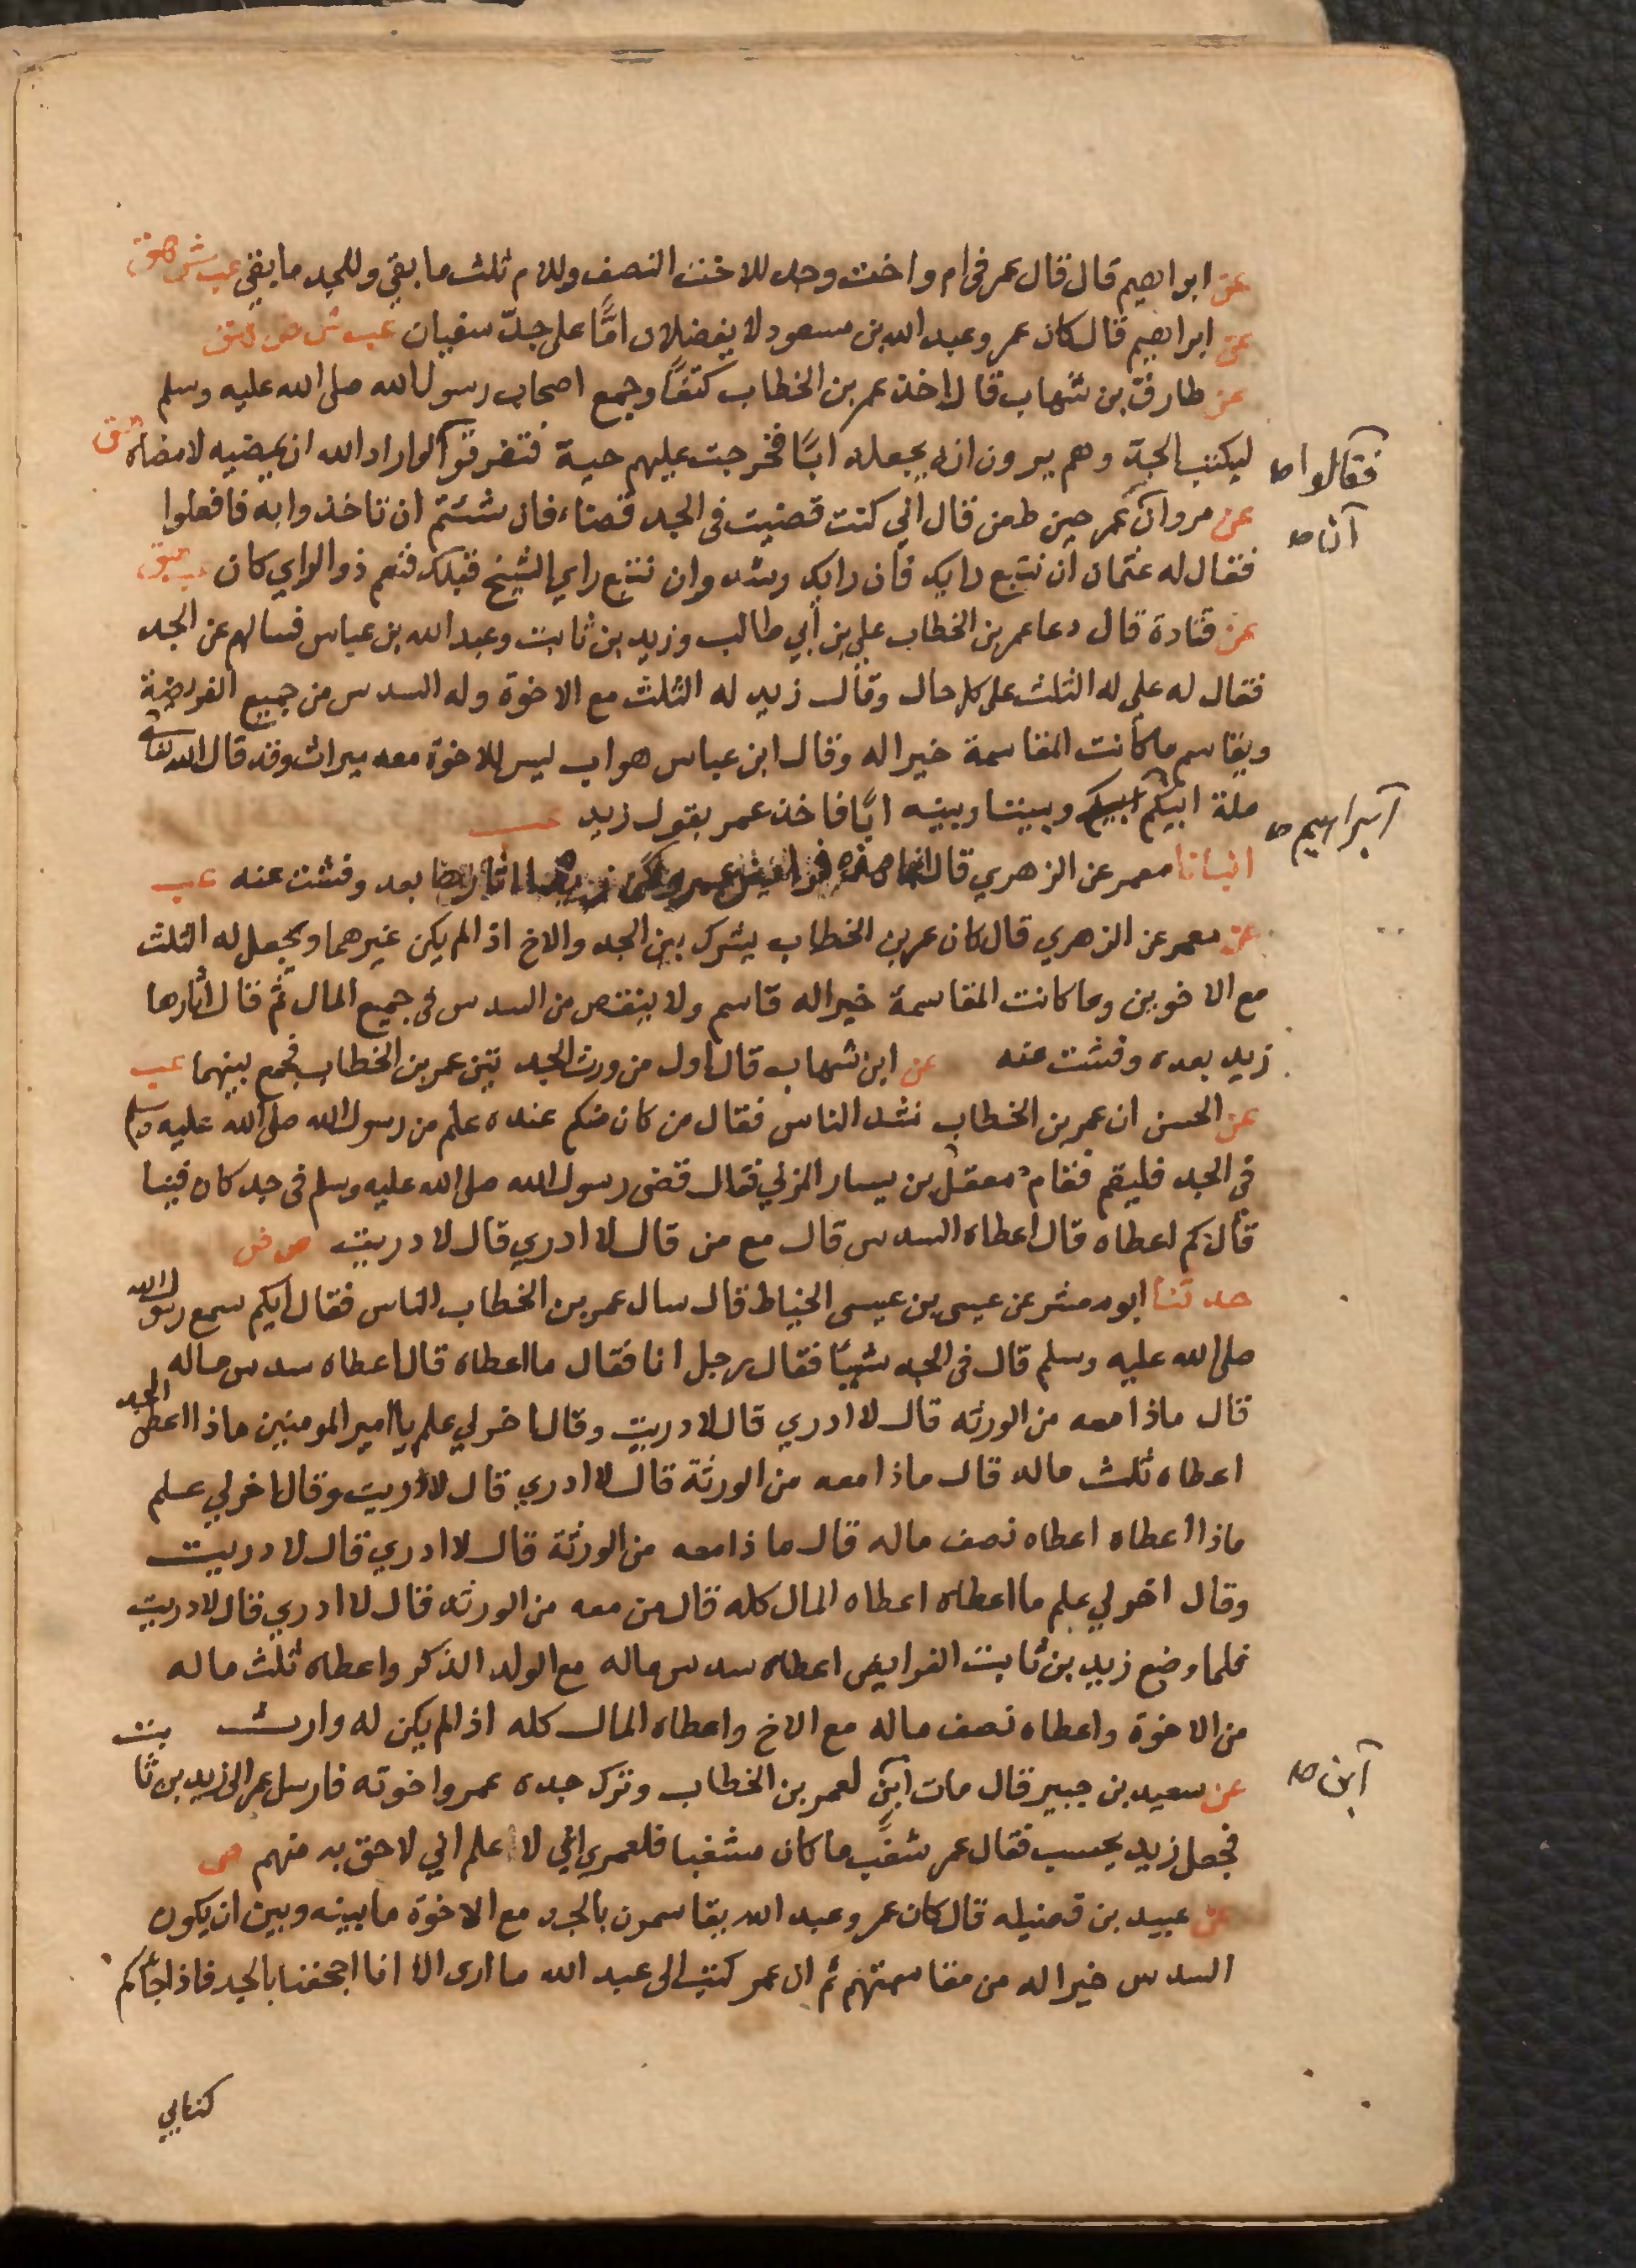 عن ابراهيم قال قال عمر في ام واخت وجد للاخت النصف وللام ثلث ما بقي وللجد ما بقي عب ش هق
عن ابراهيم قال كان عمر وعبد الله بن مسعود لا يفضلان امًّا على جدّ سفيان عب ش ص هق
عن طارق بن شهاب قال اخذ عمر بن الخطاب كتفًا وجمع اصحاب رسول الله صلى الله عليه وسلم
ليكتب الجد وهم يرون انه يجعله ابًا فخرجت عليهم حية فتفرقوا لو اراد الله ان يمضيه لامضاه هق
فقالوا ص
عن مروان عمر حين طعن قال اني كنت قضيت في الجد قضاء فان شئتم ان تاخذوا به فافعلوا
ان ص
فقال له عثمان ان نتبع رايك فان رايك رشد وان نتبع راي الشيخ قبلك فنعم ذو الراي كان عب هق
عن قتادة قال دعا عمر بن الخطاب علي بن أبي طالب وزيد بن ثابت وعبد الله بن عباس فسالهم عن الجد
فقال له علي له الثلث على كل حال وقال زيد له الثلث مع الاخوة وله السدس من جميع الفريضة
ويقاسم ما كانت المقاسمة خيرا له وقال ابن عباس هو اب ليس للاخوة معه ميراث وقد قال الله تعالى
ملة ابيكم وبيننا وبينه ابًا فاخذ عمر بقول زيد عب
ابراهيم ص
انبانا معمر عن الزهري قال انما هذه فرايض عمر ولكن زيدا اثارها بعد وفشت عنه عب
عن معمر عن الزهري قال كان عمر بن الخطاب يشرك بين الجد والاخ اذا لم يكن غيرهما ويجعل له الثلث
مع الاخوين وما كانت المقاسمة خيرا له قاسم ولا ينقص من السدس في جميع المال ثم قال اثارها
زيد بعده وفشت عنه عن ابن شهاب قال اول من ورث الجد تين عمر بن الخطاب فجمع بينهما عب
عن الحسن ان عمر بن الخطاب نشد الناس فقال من كان منكم عنده علم من رسول الله صلى الله عليه وسلم
في الجد فليقم فقام معقل بن يسار المزني فقال قضى رسول الله صلى الله عليه وسلم في جد كان فينا
قال كم اعطاه قال اعطاه السدس قال مع من قال لا ادري قال لا دريت ص
حدثنا ابو معشر عن عيسى بن عيسى الحناط قال سال عمر بن الخطاب الناس فقال ايكم سمع رسول الله
صلى الله عليه وسلم قال في الجد شيئًا فقال رجل انا فقال ما اعطاه قال اعطاه سدس ماله
قال ماذا معه من الورثه قال لا ادري قال لا دريت وقال اخر لي علم يا امير المومنين ماذا اعطى الجد
اعطاه ثلث ماله قال ماذا معه من الورثة قال لا ادري قال لا دريت وقال اخر لي علم
ماذا اعطاه اعطاه نصف ماله قال ماذا معه من الورثة قال لا ادري قال لا دريت
وقال اخر لي علم ما اعطاه اعطاه المال كله قال من معه من الورثه قال لا ادري قال لا دريت
فلما وضع زيد بن ثابت الفرايض اعطاه سدس ماله مع الولد الذكر واعطاه ثلث ماله
من الاخوة واعطاه نصف ماله مع الاخ واعطاه المال كله اذا لم يكن له وارث
عن سعيد بن جبير قال مات ابن لعمر بن الخطاب وترك جده عمر واخوته فارسل عمر الى زيد بن ثابت
ابن ص
فجعل زيد يحسب فقال عمر شغّب ما كان مشغبا فلعمري اني لا علم اني لاحق به منهم ص
عن عبيد بن قال كان عمر وعبد الله يقاسمون بالجد مع الاخوة ما بينه وبين ان يكون
السدس خيرا له من مقاسمتهم ثم ان عمر كتب الى عبد الله ما ارى الا انا اجحفنا بالجد فاذا جاكم
كتابي